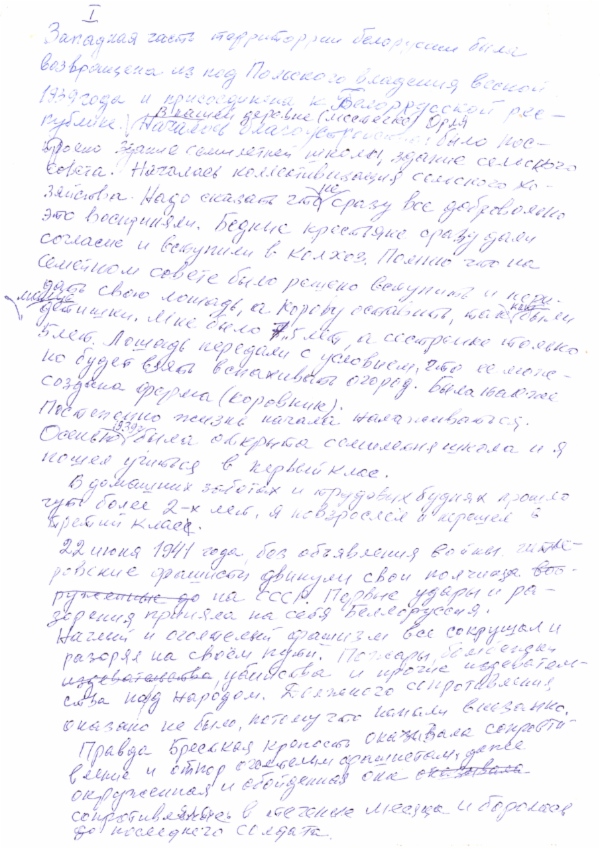 I
Западная часть территоррии белоруссии была
возвращена из под Польского владения весной
1939 года и присоединена к Белорусской рес-
В нашей деревне (местечке) Орля
публике. было пос-
троено здание семилетней школы, здание сельского
совета. Началась коллективизация сельского хо-
зяйства. Надо сказать что не сразу все добровольно
это восприняли. Бедние крестяне сразу дали
согласие и вступили в Колхоз. Помню что на
семейном совете было решено вступить и пере-
дать свою лошадь, а корову оставить, так как были
малые детишки. Мне было 7,5 лет, а сестренке только
5 лет. Лошадь передали с условием, что ее мож-
но будет взять вспахивать огород. Была также
создана ферма (коровник).
Постепенно жизнь начала налаживаться.
Осенью 1939г была открыта семилетняя школа и я
пошел учиться в первый клас.
В домашних заботах и трудовых буднях прошло
чуть более 2-х лет, я повзрослел и перешел в
третий класс.
22 июня 1941 года без объявления войны гитле-
ровские фашисты двинули свои полчища воо-
руженные до на СССР. Первые удары и ра-
зорения приняла на себя Беллоруссия.
Наглый и фашизм все сокрушал и
разорял на своем пути. Пожары,
издевательства, убийства и прочие издеватель-
ства над народом. Должного сопротивления
оказано не было, потому что напали внезапно.
Правда Брестская крепость оказывала сопроти-
вление и отпор фашистам, даже
окруженная и обойденная она оказывала
сопротивлялась в течение месяца и боролась
до последнего солдата.